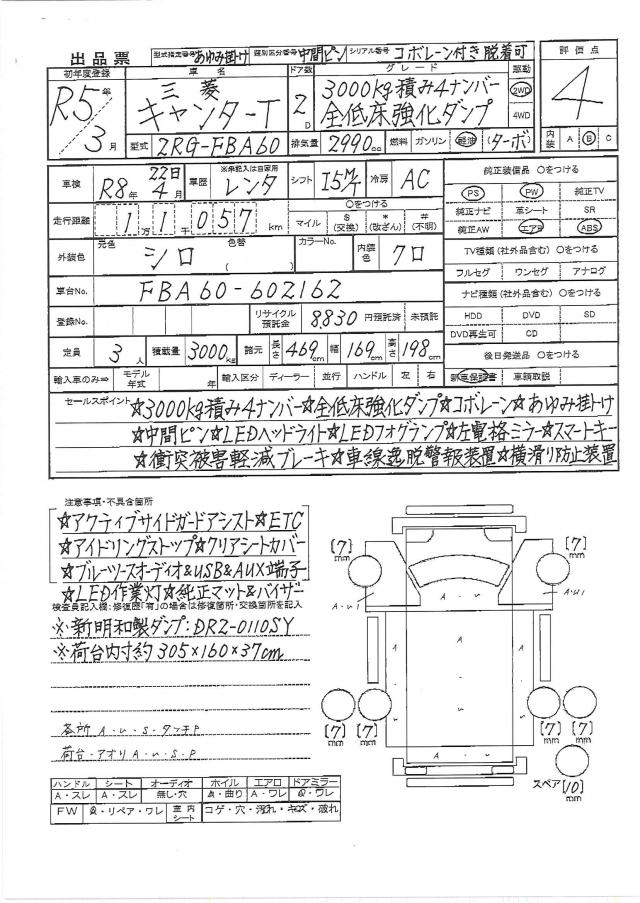 出品票 型式指定番号 あゆみ掛け 類別区分番号 中間ピン シリアル番号 コボレーン付き 脱着可
初年度登録 車名 ドア数 グレード 駆動 評価点
R5年 三菱 3000kg積み4ナンバー 2WD 4
3月 キャンターT 2D 全低床強化ダンプ 4WD
型式 2RG-FBA60 排気量 2990cc 燃料 ガソリン 軽油 (ターボ) 内装 A B C
車検 R8年 22日 4月 車歴 ※未記入は自家用 レンタ シフト I5M/T 冷房 AC
純正装備品 ○をつける
PS PW 純正TV
純正ナビ 革シート SR
純正AW エアB ABS
走行距離 11万1千057km ○をつける マイル $(交換) *(改ざん) #(不明)
外装色 元色 シロ 色替 ( ) カラーNo. 内装色 クロ
TV種類(社外品含む) ○をつける
フルセグ ワンセグ アナログ
車台No. FBA60-602162
ナビ種類(社外品含む) ○をつける
HDD DVD SD
DVD再生可 CD
登録No. リサイクル預託金 8,830 円預託済 未預託
定員 3人 積載量 3000kg 諸元 長さ 469cm 幅 169cm 高さ 198cm
後日発送品 ○をつける
新車保証書 車輌取説
輸入車のみ⇒ モデル年式 年 輸入区分 ディーラー 並行 ハンドル 左 右
セールスポイント
☆3000kg積み4ナンバー☆全低床強化ダンプ☆コボレーン☆あゆみ掛け
☆中間ピン☆LEDヘッドライト☆LEDフォグランプ☆左電格ミラー☆スマートキー
☆衝突被害軽減ブレーキ☆車線逸脱警報装置☆横滑り防止装置
注意事項・不具合箇所
☆アクティブサイドガードアシスト☆ETC
☆アイドリングストップ☆クリアシートカバー
☆ブルーツースオーディオ&USB&AUX端子
☆LED作業灯☆純正マット&バイザー
検査員記入欄:修復歴「有」の場合は修復箇所・交換箇所を記入
※新明和製ダンプ:DR2-0110SY
※荷台内寸約305×160×37cm
各所 A・U・S・タッチP
荷台・アオリ A・U・S・P
[7]mm [7]mm
A・U1 A・U1
[7]mm [7]mm [7]mm [7]mm
スペア [10]mm
ハンドル シート オーディオ ホイル エアロ ドアミラー
A・スレ A・スレ 無し・穴 点・曲り A・ワレ Q・ワレ
FW Q・リペア・ワレ 室内シート コゲ・穴・汚れ・キズ・破れ